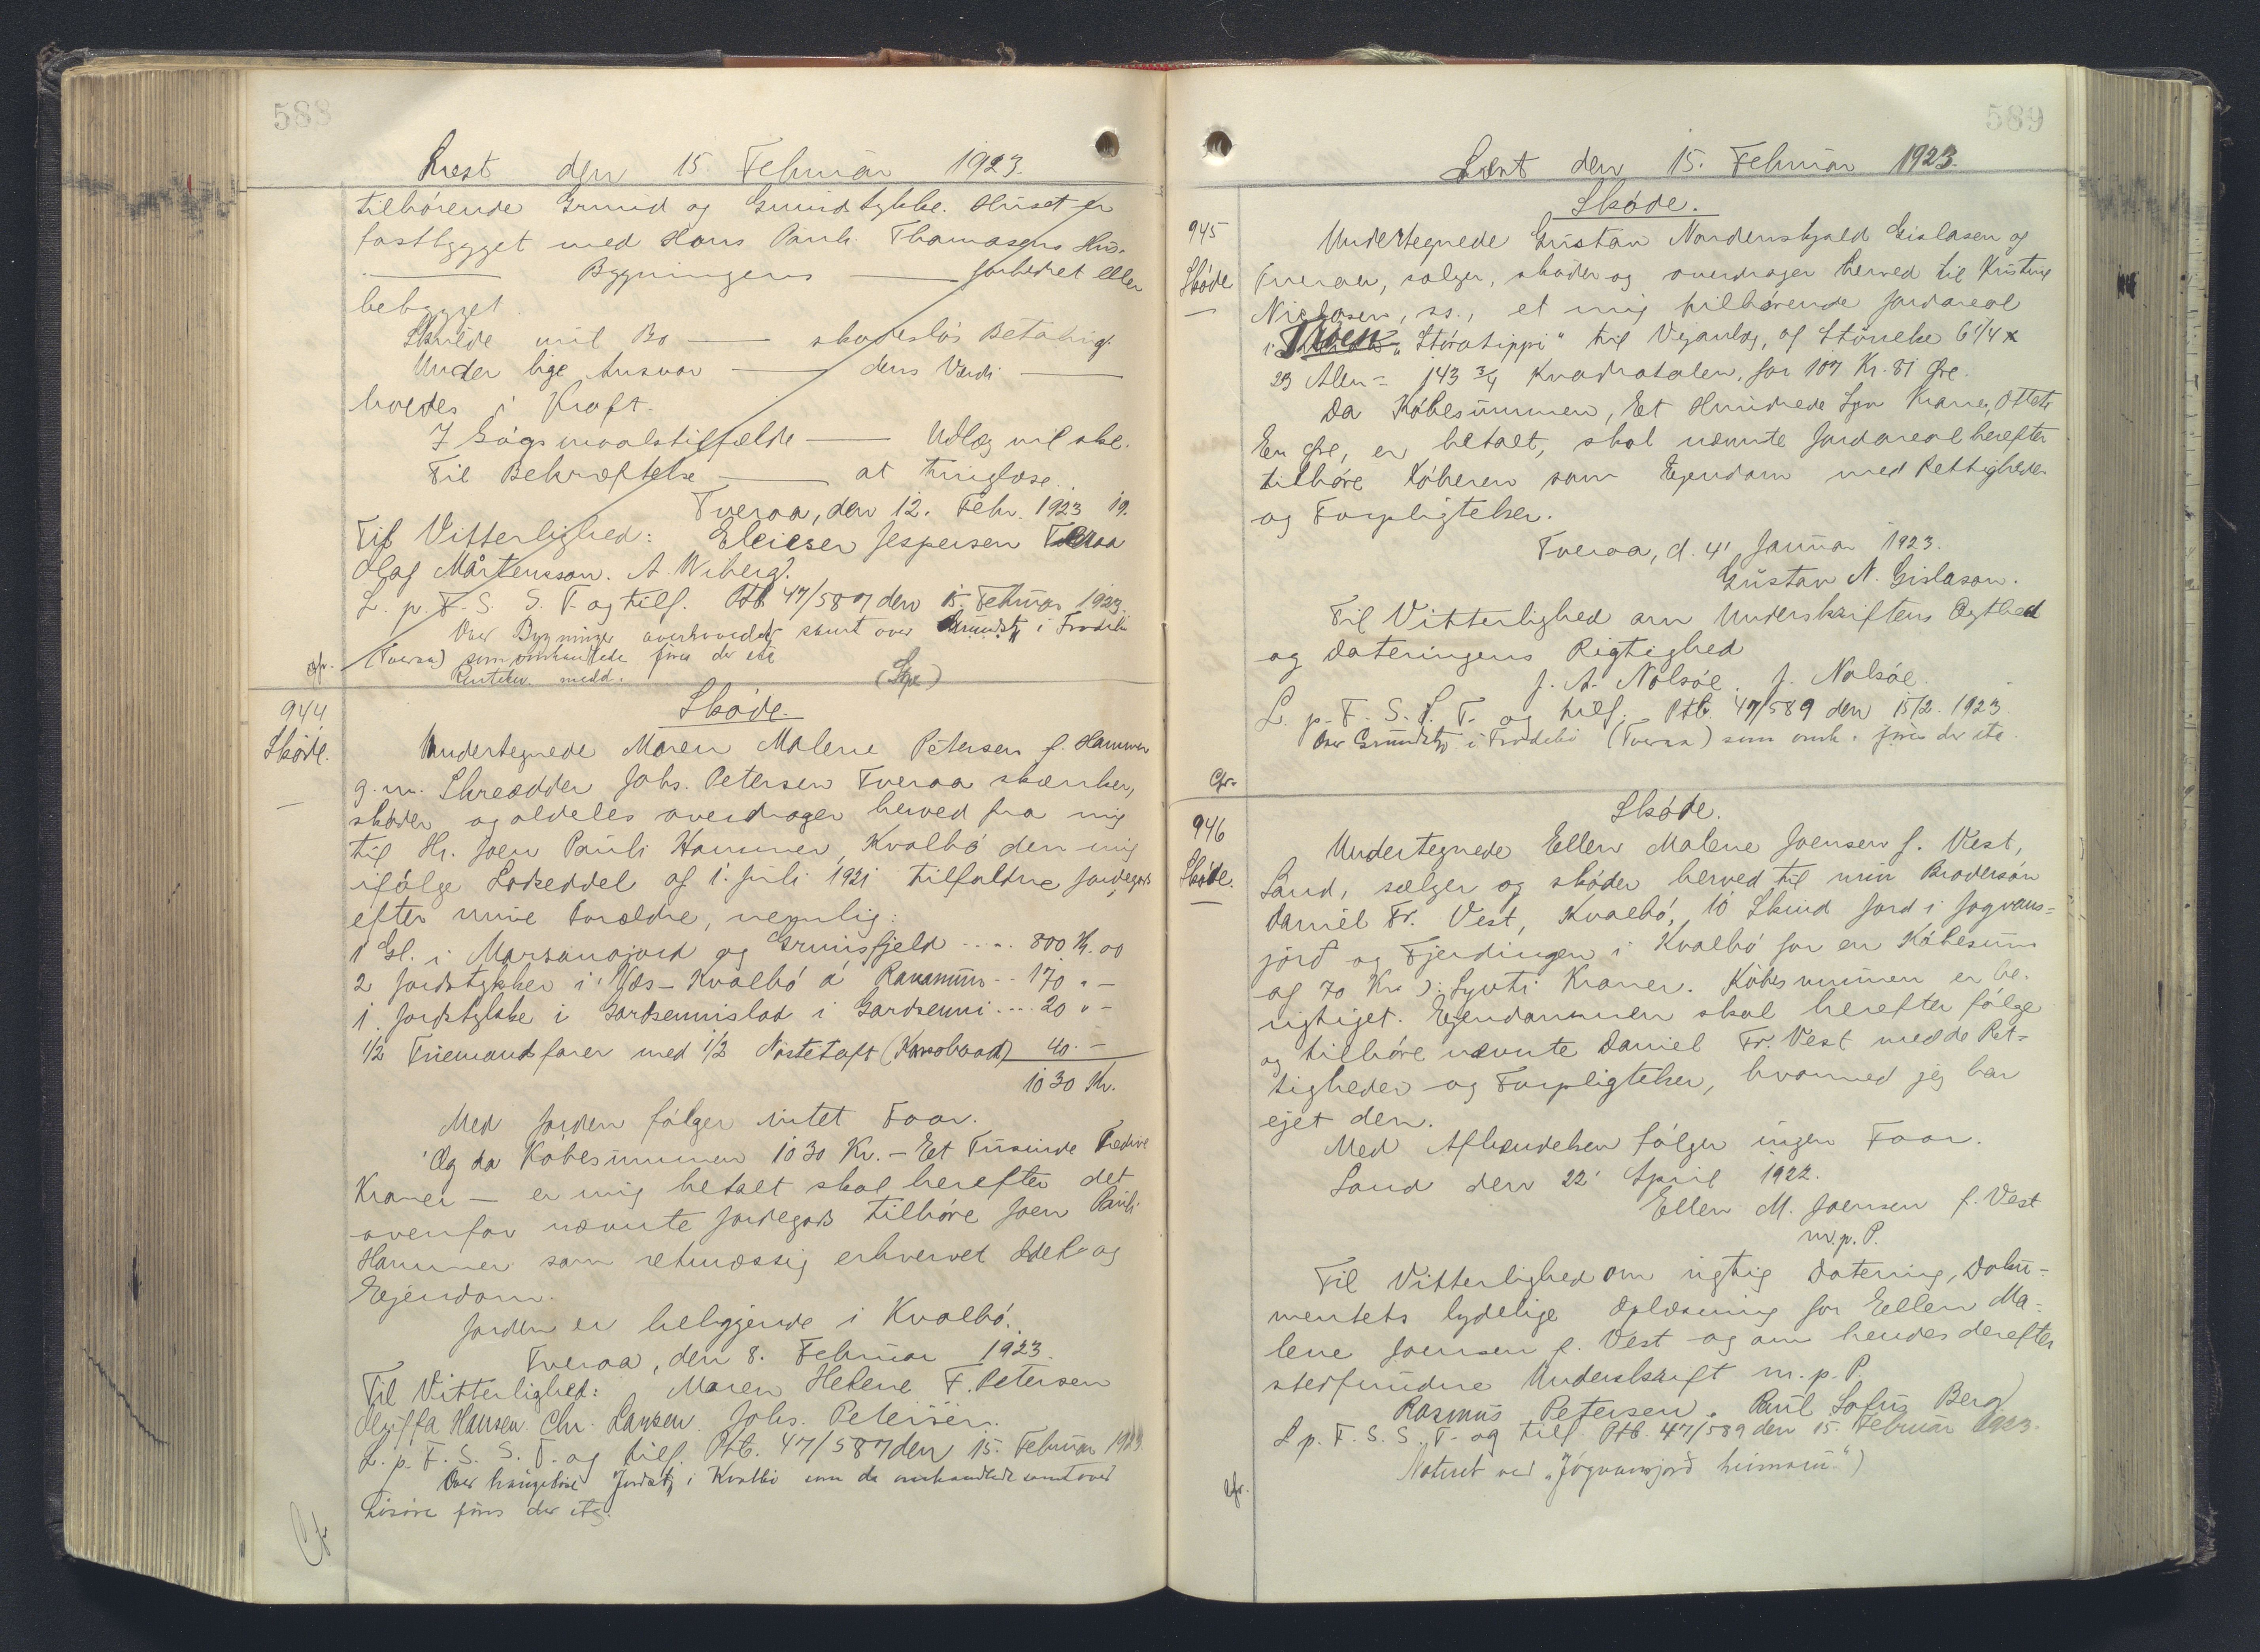 588
Læst den 15. Februar 1923.
tilhørende Grund og Grundstykke. Huset er
fastbygget med Hans Paul Thomasens Hus.
Bygningens — forbedret eller
bebygget.
Skulde mit Bo — skadesløs Betaling.
Under lige Ansvar — dens Værdi —
holdes i Kraft.
I Søgsmaalstilfælde — Udlæg vil ske.
Til Bekræftelse — at tinglæse.
Tveraa, den 12. Febr. 1923 19.
Til Vitterlighed: Elieser Jespersen Tveraa
Olaf Mårtensson. A. Wiberg.
L. p. F. S. S. T. og tilf. Ptb 47/587 den 15. Februar 1923.
Over Bygninger overhovedet samt over Grundst. i Frodebø
(Tveraa) som omhandlede föres der ete
cfr.
944
Skøde.
Skøde.
Undertegnede Maren Malene Petersen f. Hammer
g. m. Skrædder Johs. Petersen Tveraa skænker,
skøder og aldeles overdrager herved fra mig
til Hr. Joen Pauli Hammer, Kvalbø den mig
ifølge Lodseddel af 1. Juli 1921 tilfaldne Jordegods
efter mine Forældre, nemlig:
1 Gl. i Marsanajord og Grimsfjeld .... 800 Kr. 00
2 Jordstykker i Nes-Kvalbø á .. 170 " -
1 Jordstykke i i .... 20 " -
1/2 Triemandfarer med 1/2 Nøstetoft 40 . -
1030 Kr.
Med Jorden følger intet Faar.
Og da Købesummen 1030 Kr. - Et Tusinde Tredive
Kroner — er mig betalt skal herefter det
ovenfor nævnte Jordegods tilhøre Joen Pauli
Hammer som retmæssig erhvervet Odel og
Ejendom.
Jorden er beliggende i Kvalbø.
Tveraa, den 8. Februar 1923.
Til Vitterlighed: Maren Helene F. Petersen
Oluffa Hansen. Chr. Larsen. Johs. Petersen.
L. p. F. S. S. T. og tilf. Ptb. 47/587 den 15. Februar 1923
Over Jordst. i Kvalbø som de omhandlede samt over
Lösöre föres der ete.
Cfr
589
Læst den 15. Februar 1923.
Skøde.
945
Skøde
Undertegnede Gustav Nordenskjold Gislason og
Tveraa, sælger, skøder og overdrager herved til Kristine
Niclasen, ss., et mig tilhørende Jordareal
i "Stóratippi" til Vejanlæg, af Størrelse 6 1/4 x
23 Alen = 143 3/4 Kvadratalen, for 107 Kr. 81 Øre.
Da Købesummen, Et Hundrede Syv Kroner, Otteti
En Øre, er betalt, skal nævnte Jordareal herefter
tilhøre Køberen som Ejendom med Rettigheder
og Forpligtelser.
Tveraa, d. 4' Januar 1923.
Gustav N. Gislason.
Til Vitterlighed om Underskriftens Ægthed
og Dateringens Rigtighed
J. A. Nolsøe. J. Nolsøe.
L. p. F. S. S. T. og tilf. Ptb. 47/589 den 15/2. 1923.
Over Grundst. i Frodebø (Tveraa) som omh. föres der ete.
Cfr.
946
Skøde.
Skøde.
Undertegnede Ellen Malene Joensen f. Vest,
Sand, sælger og skøder herved til min Brodersøn
Daniel Fr. Vest, Kvalbø, 10 Skind Jord i Jogvans=
jörd og Fjerdingen i Kvalbø for en Købesum
af 70 Kr. ɔ: Syvti Kroner. Købesummen er be-
rigtiget. Ejendommen skal herefter følge
og tilhøre nævnte Daniel Fr. Vest med de Ret=
tigheder og Forpligtelser, hvormed jeg har
ejet den.
Med Afhændelsen følger ingen Faar.
Sand den 22' April 1922.
Ellen M. Joensen f. Vest
m. p. P.
Til Vitterlighed om rigtig Datering, Doku=
mentets lydelige Oplæsning for Ellen Ma=
lene Joensen f. Vest og om hendes derefter
stedfundne Underskrift m. p. P.
Rasmus Petersen. Poul Sofus Berg
L. p. F. S. S. T. og tilf. Ptb. 47/589 den 15. Februar 1923.
Noteret ved "Jógvansjørð heimari")
cfr.